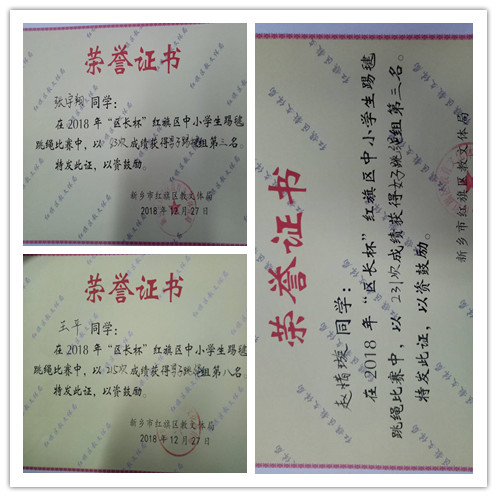 荣誉证书
张宇翔 同学:
在 2018 年“区长杯”红旗区中小学生踢毽
跳绳比赛中,以 成绩获得男子跳绳组第三名。
特发此证,以资鼓励。
新乡市红旗区教文体局
2018 年 12 月 27 日
荣誉证书
同学:
在 2018 年“区长杯”红旗区中小学生踢毽
跳绳比赛中,以 成绩获得男子跳绳组第八名。
特发此证,以资鼓励。
新乡市红旗区教文体局
2018 年 12 月 27 日
荣誉证书
赵惜璇 同学:
在 2018 年“区长杯”红旗区中小学生踢毽
跳绳比赛中,以 231次 成绩获得女子跳绳组第三名。
特发此证,以资鼓励。
新乡市红旗区教文体局